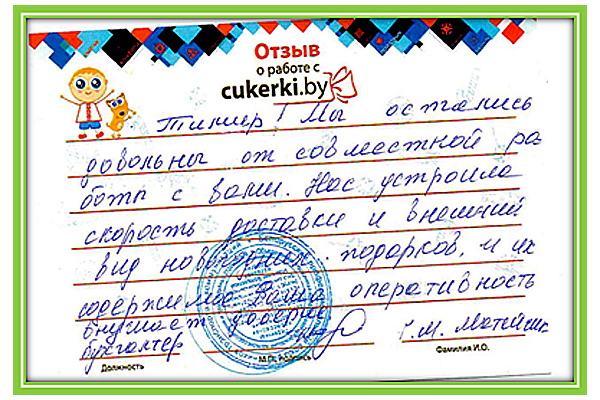 Отзыв
о работе с
cukerki.by
! Мы остались
довольны от совместной ра
боты с вами. Нас устроила
скорость доставки и внешний
вид новогодних подарков, и их
содержимое Ваша оперативность
внушает доверие
бухгалтер
Г.М.
Должность
М.П. подпись
Фамилия И.О.